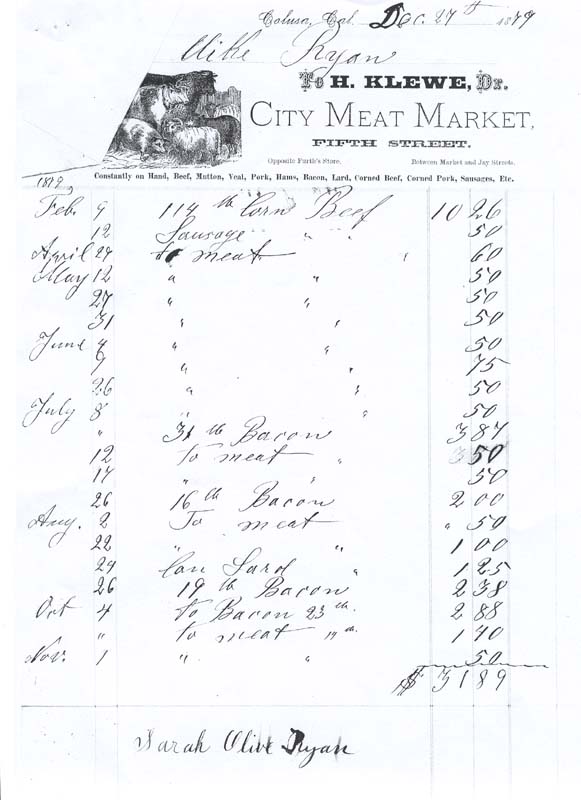 Colusa, Cal. Dec. 27th 1879
Mike Ryan
To H. KLEWE, Dr.
CITY MEAT MARKET,
FIFTH STREET.
Opposite Furth's Store. Between Market and Jay Streets.
Constantly on Hand, Beef, Mutton, Veal, Pork, Hams, Bacon, Lard, Corned Beef, Corned Pork, Sausages, Etc.
1879
Feb. 9 114 lb Corn Beef 10 26
12 Sausage " " 50
April 29 to meat 60
May 12 " " 50
27 " " 50
31 " " 50
June 4 " " 50
9 " " 75
26 " " 50
July 8 " " 50
" 31 lb Bacon 3 87
12 to meat " 50
17 " " 50
26 16 lb Bacon 2 00
Aug. 2 To meat " 50
22 " " 1 00
24 Can Lard " 1 25
26 19 lb Bacon 2 38
Oct 4 to Bacon 23 lb. 2 88
" to meat lb. 1 40
Nov. 1 " " 50
$ 31 89
Sarah Olive Ryan